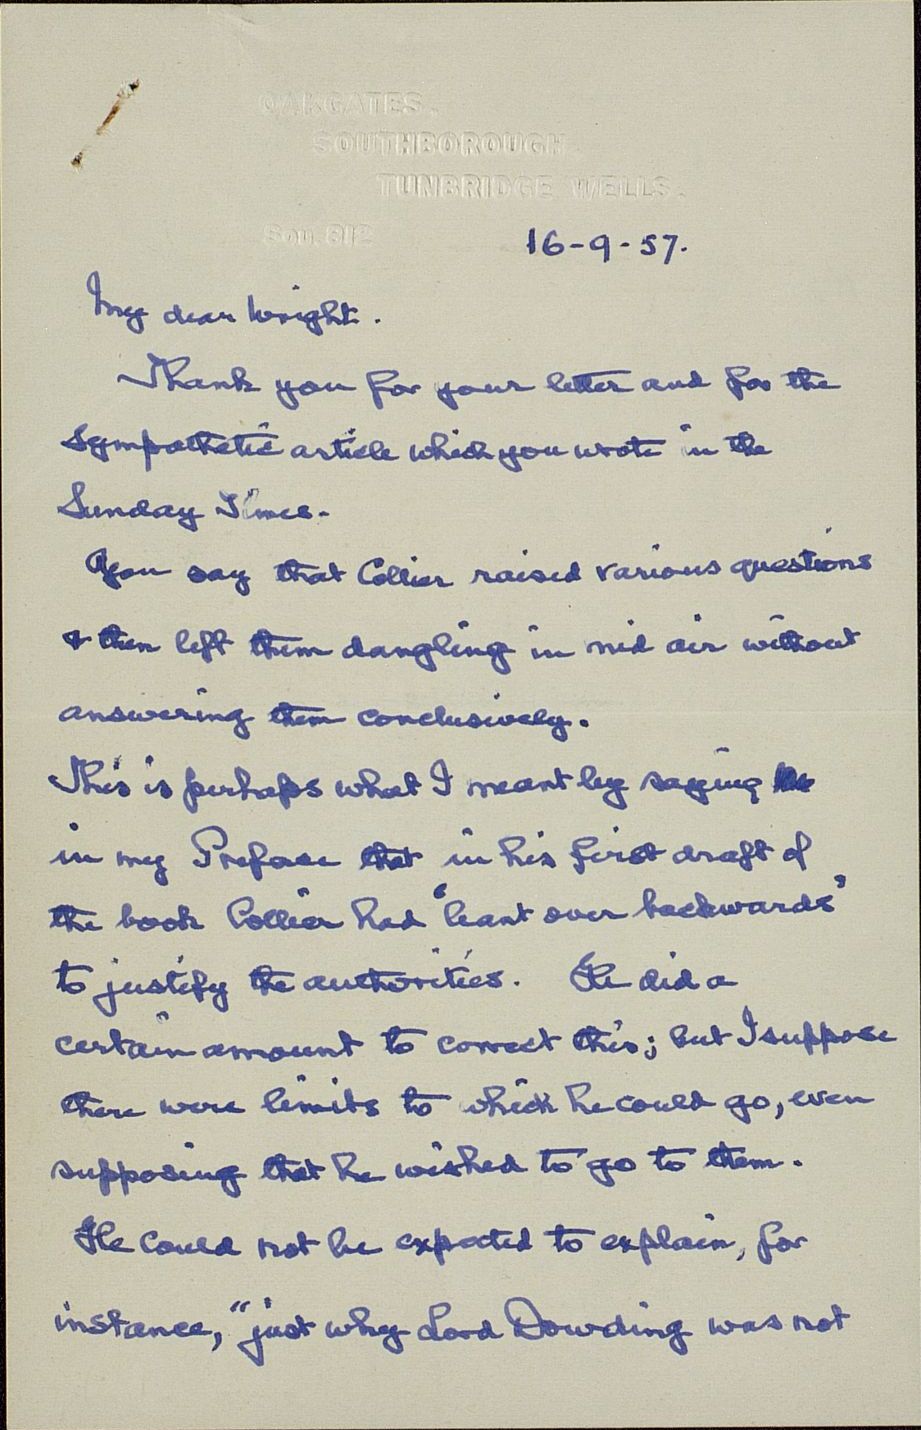 OAKGATES.
SOUTHBOROUGH.
TUNBRIDGE WELLS.
Sou. 812
16-9-57.
My dear Wright.
Thank you for your letter and for the
sympathetic article which you wrote in the
Sunday Times.
You say that Collier raised various questions
& then left them dangling in mid air without
answering them conclusively.
This is perhaps what I meant by saying
in my Preface that in his first draft of
the book Collier had "leant over backwards"
to justify the authorities. He did a
certain amount to correct this; but I suppose
there were limits to which he could go, even
supposing that he wished to go to them.
He could not be expected to explain, for
instance, "just why Lord Dowding was not